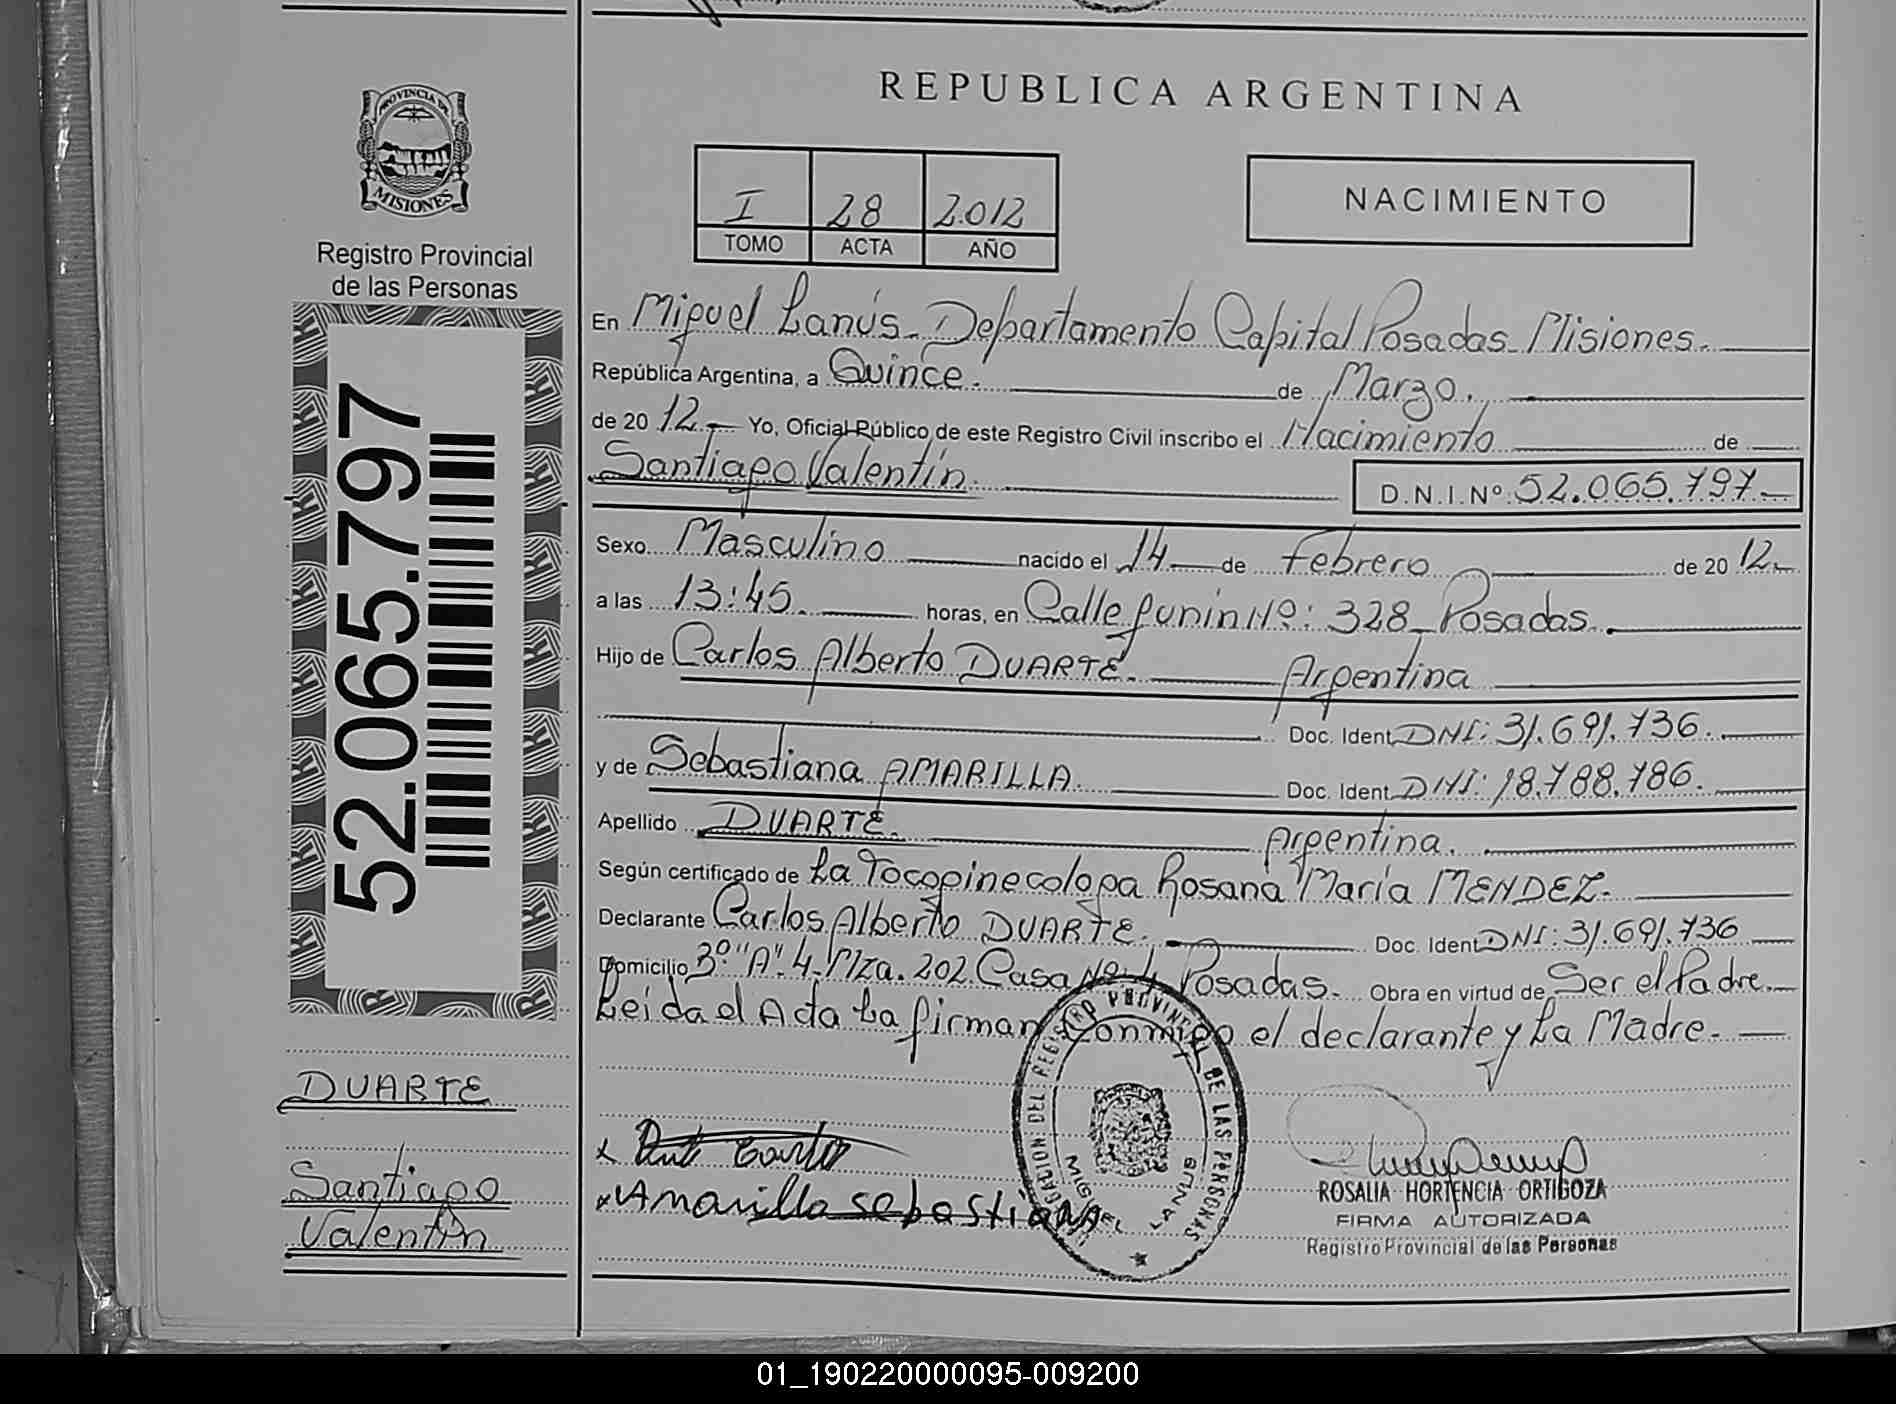 REPUBLICA ARGENTINA
PROVINCIA DE
MISIONES
Registro Provincial
de las Personas
I 28 2.012
TOMO ACTA AÑO
NACIMIENTO
52.065.797
En Miguel Lanús - Departamento Capital Posadas - Misiones.
República Argentina, a Quince. de Marzo.
de 20 12.- Yo, Oficial Público de este Registro Civil inscribo el Nacimiento de
Santiago Valentín D.N.I.Nº 52.065.797.-
Sexo Masculino nacido el 14 de Febrero de 20 12.-
a las 13:45. horas, en Calle Junín Nº: 328 - Posadas.
Hijo de Carlos Alberto DUARTE. Argentina
Doc. Ident. DNI: 31.691.736.
y de Sebastiana AMARILLA. Doc. Ident. DNI: 18.788.786.
Apellido DUARTE. Argentina.
Según certificado de La Tocoginecologa Rosana María MENDEZ.
Declarante Carlos Alberto DUARTE. Doc. Ident. DNI: 31.691.736
Domicilio 3º "A" 4. Mza. 202. Casa Nº: 4 Posadas. Obra en virtud de Ser el Padre.
Leida el Acta La firman Conmigo el declarante y La Madre.
DUARTE
Santiago
Valentín
x Amarilla sebastiana
DELEGACION DEL REGISTRO PROVINCIAL DE LAS PERSONAS
MIGUEL LANUS
ROSALIA HORTENCIA ORTIGOZA
FIRMA AUTORIZADA
Registro Provincial de las Personas
01_190220000095-009200